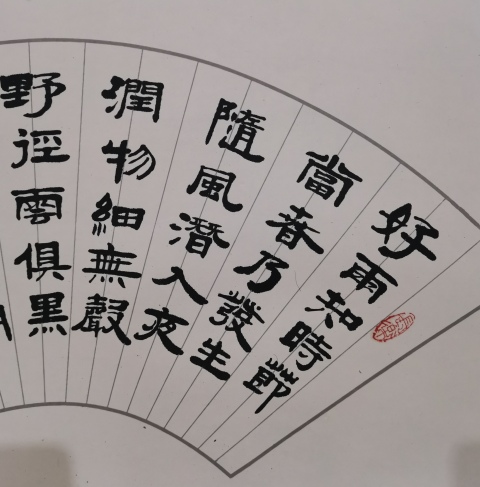 好雨知時節
當春乃發生
隨風潛入夜
潤物細無聲
野徑雲俱黑